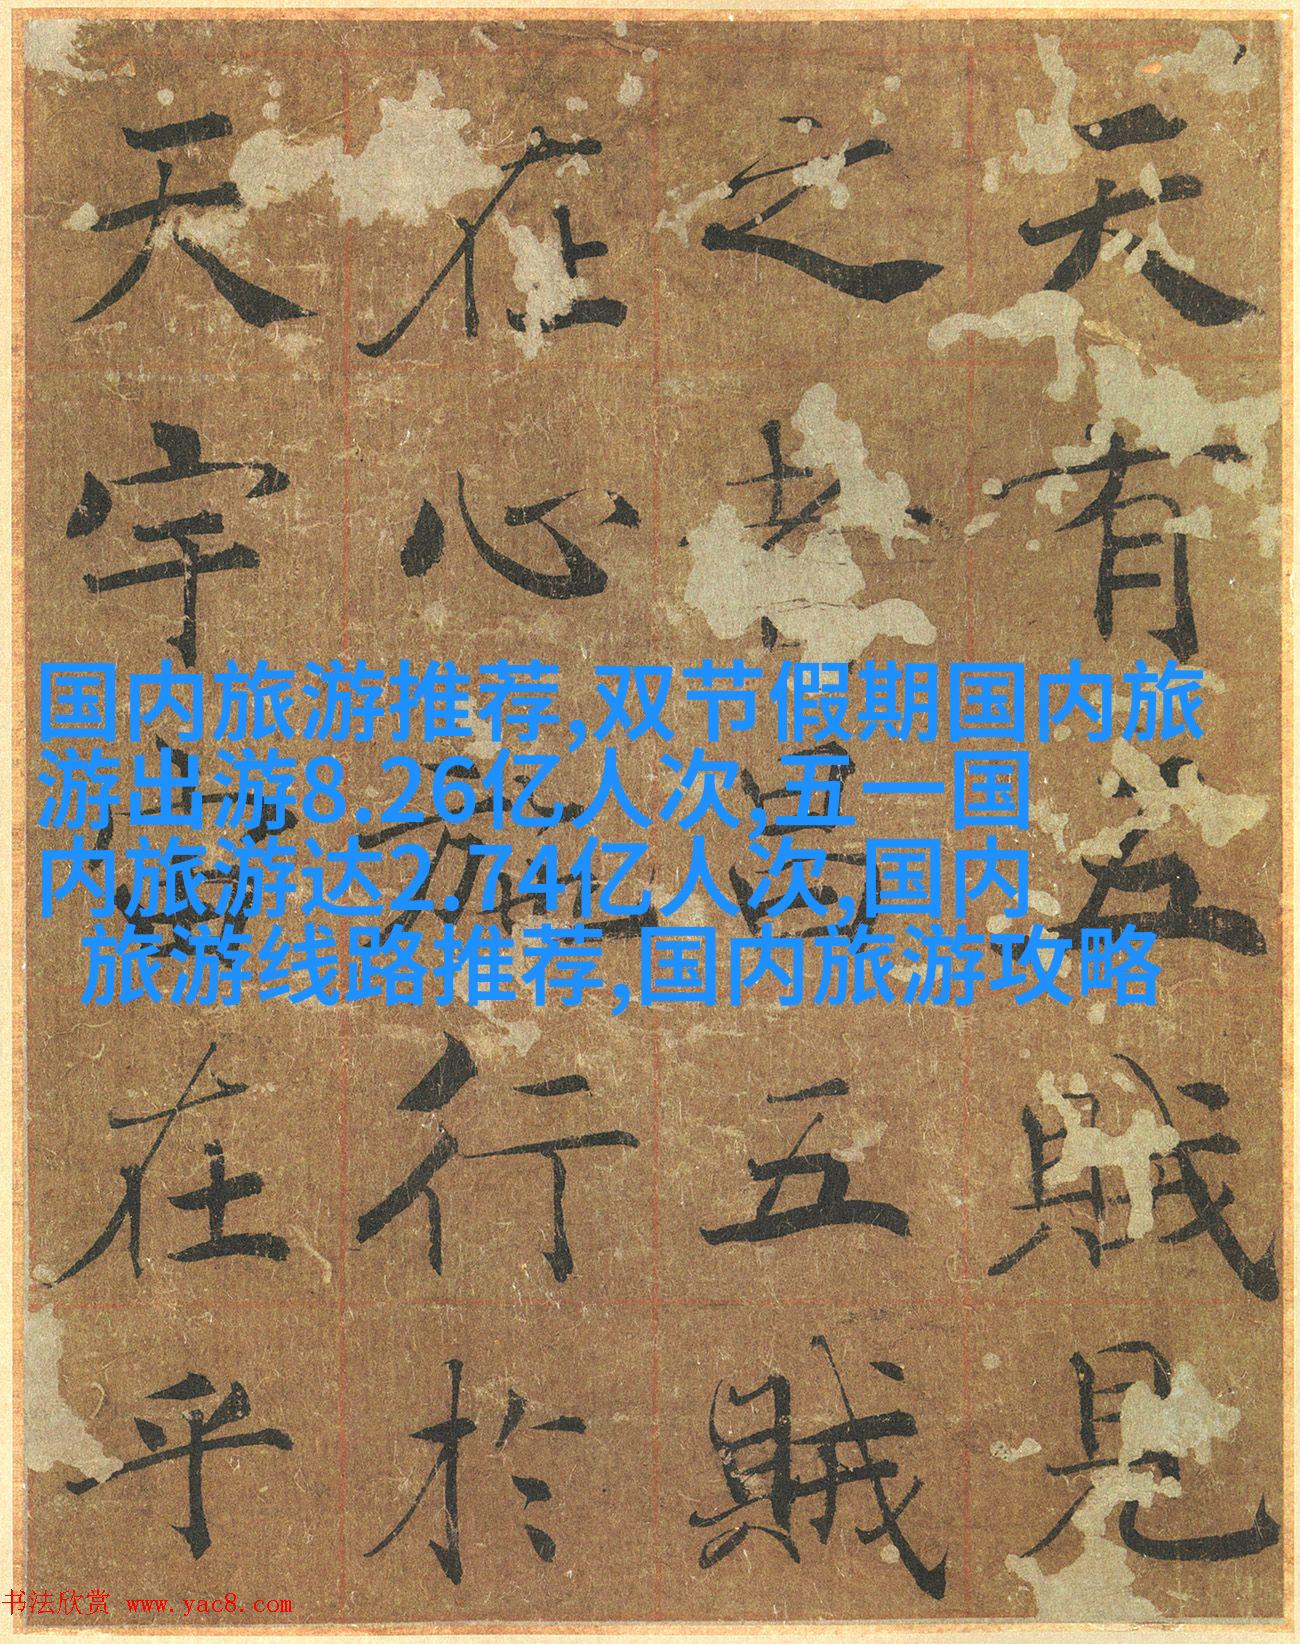 天有五賊見
之者昌五賊
在心施行於
天宇宙在乎
国内旅游推荐,双节假期国内旅
游出游8.26亿人次,五一国
内旅游达2.74亿人次,国内
旅游线路推荐,国内旅游攻略
书法欣赏 www.yac8.com